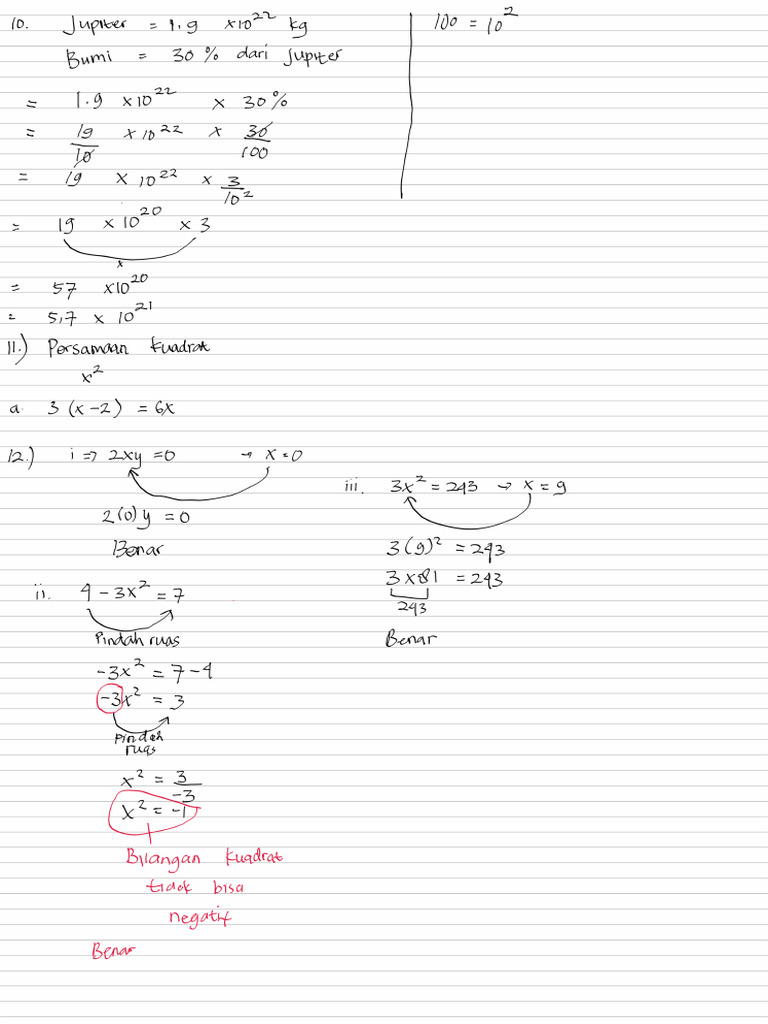 10. Jupiter = 1.9 x10²² kg
Bumi = 30% dari Jupiter
= 1.9 x10²² x 30%
= 19/10 x10²² x 30/100
= 19 x 10²² x 3/10²
= 19 x10²⁰ x 3
x
= 57 x10²⁰
= 5,7 x 10²¹
100 = 10²
11.) Persamaan kuadrat
x²
a. 3 (x-2) = 6x
12.) i => 2xy = 0 → x = 0
2(0)y = 0
Benar
ii. 4 - 3x² = 7
Pindah ruas
-3x² = 7-4
-3x² = 3
Pindah
ruas
x² = 3/-3
x² = -1
Bilangan kuadrat
tidak bisa
negatif
Benar
iii. 3x² = 243 → x = 9
3(9)² = 243
3 x 81 = 243
243
Benar